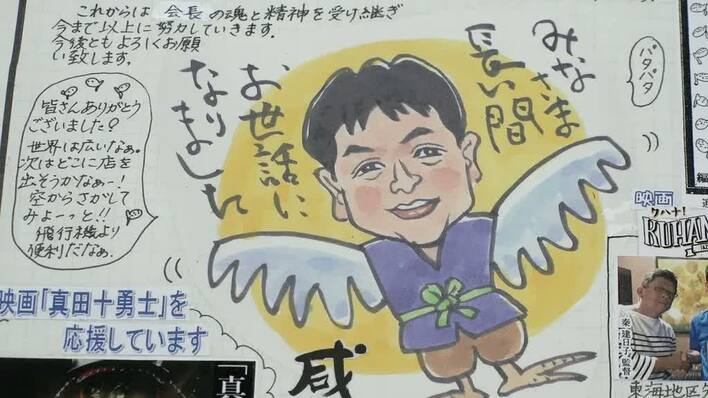 これからは 会長の魂と精神を受け継ぎ
今まで以上に努力していきます。
今後ともよろしくお願
い致します。
みなさま
長い間
お世話に
なりました
パタパタ
皆さんありがとう
ございました。
世界は広いなぁ。
次はどこに店を
出そうかなぁー!
空からさがして
みよーっと!!
飛行機より
便利だなぁ。
映画「真田十勇士」を
応援しています
「真
感
編
映画
クハナ!
KUHANA
秦建日子監督
東海地区